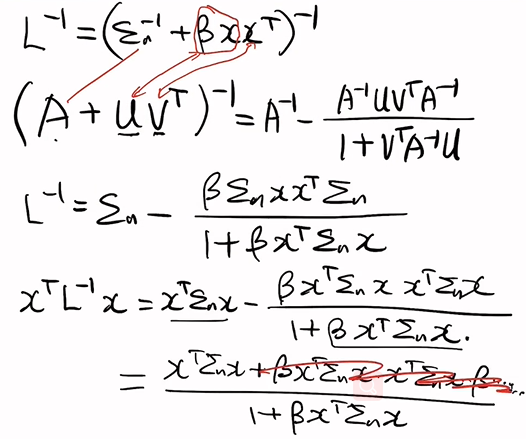 L⁻¹ = (Σₙ⁻¹ + βxxᵀ)⁻¹
(A + UVᵀ)⁻¹ = A⁻¹ − A⁻¹UVᵀA⁻¹ / 1 + VᵀA⁻¹U
L⁻¹ = Σₙ − βΣₙxxᵀΣₙ / 1 + βxᵀΣₙx
xᵀL⁻¹x = xᵀΣₙx − βxᵀΣₙx xᵀΣₙx / 1 + βxᵀΣₙx.
= xᵀΣₙx + βxᵀΣₙx xᵀΣₙx β / 1 + βxᵀΣₙx